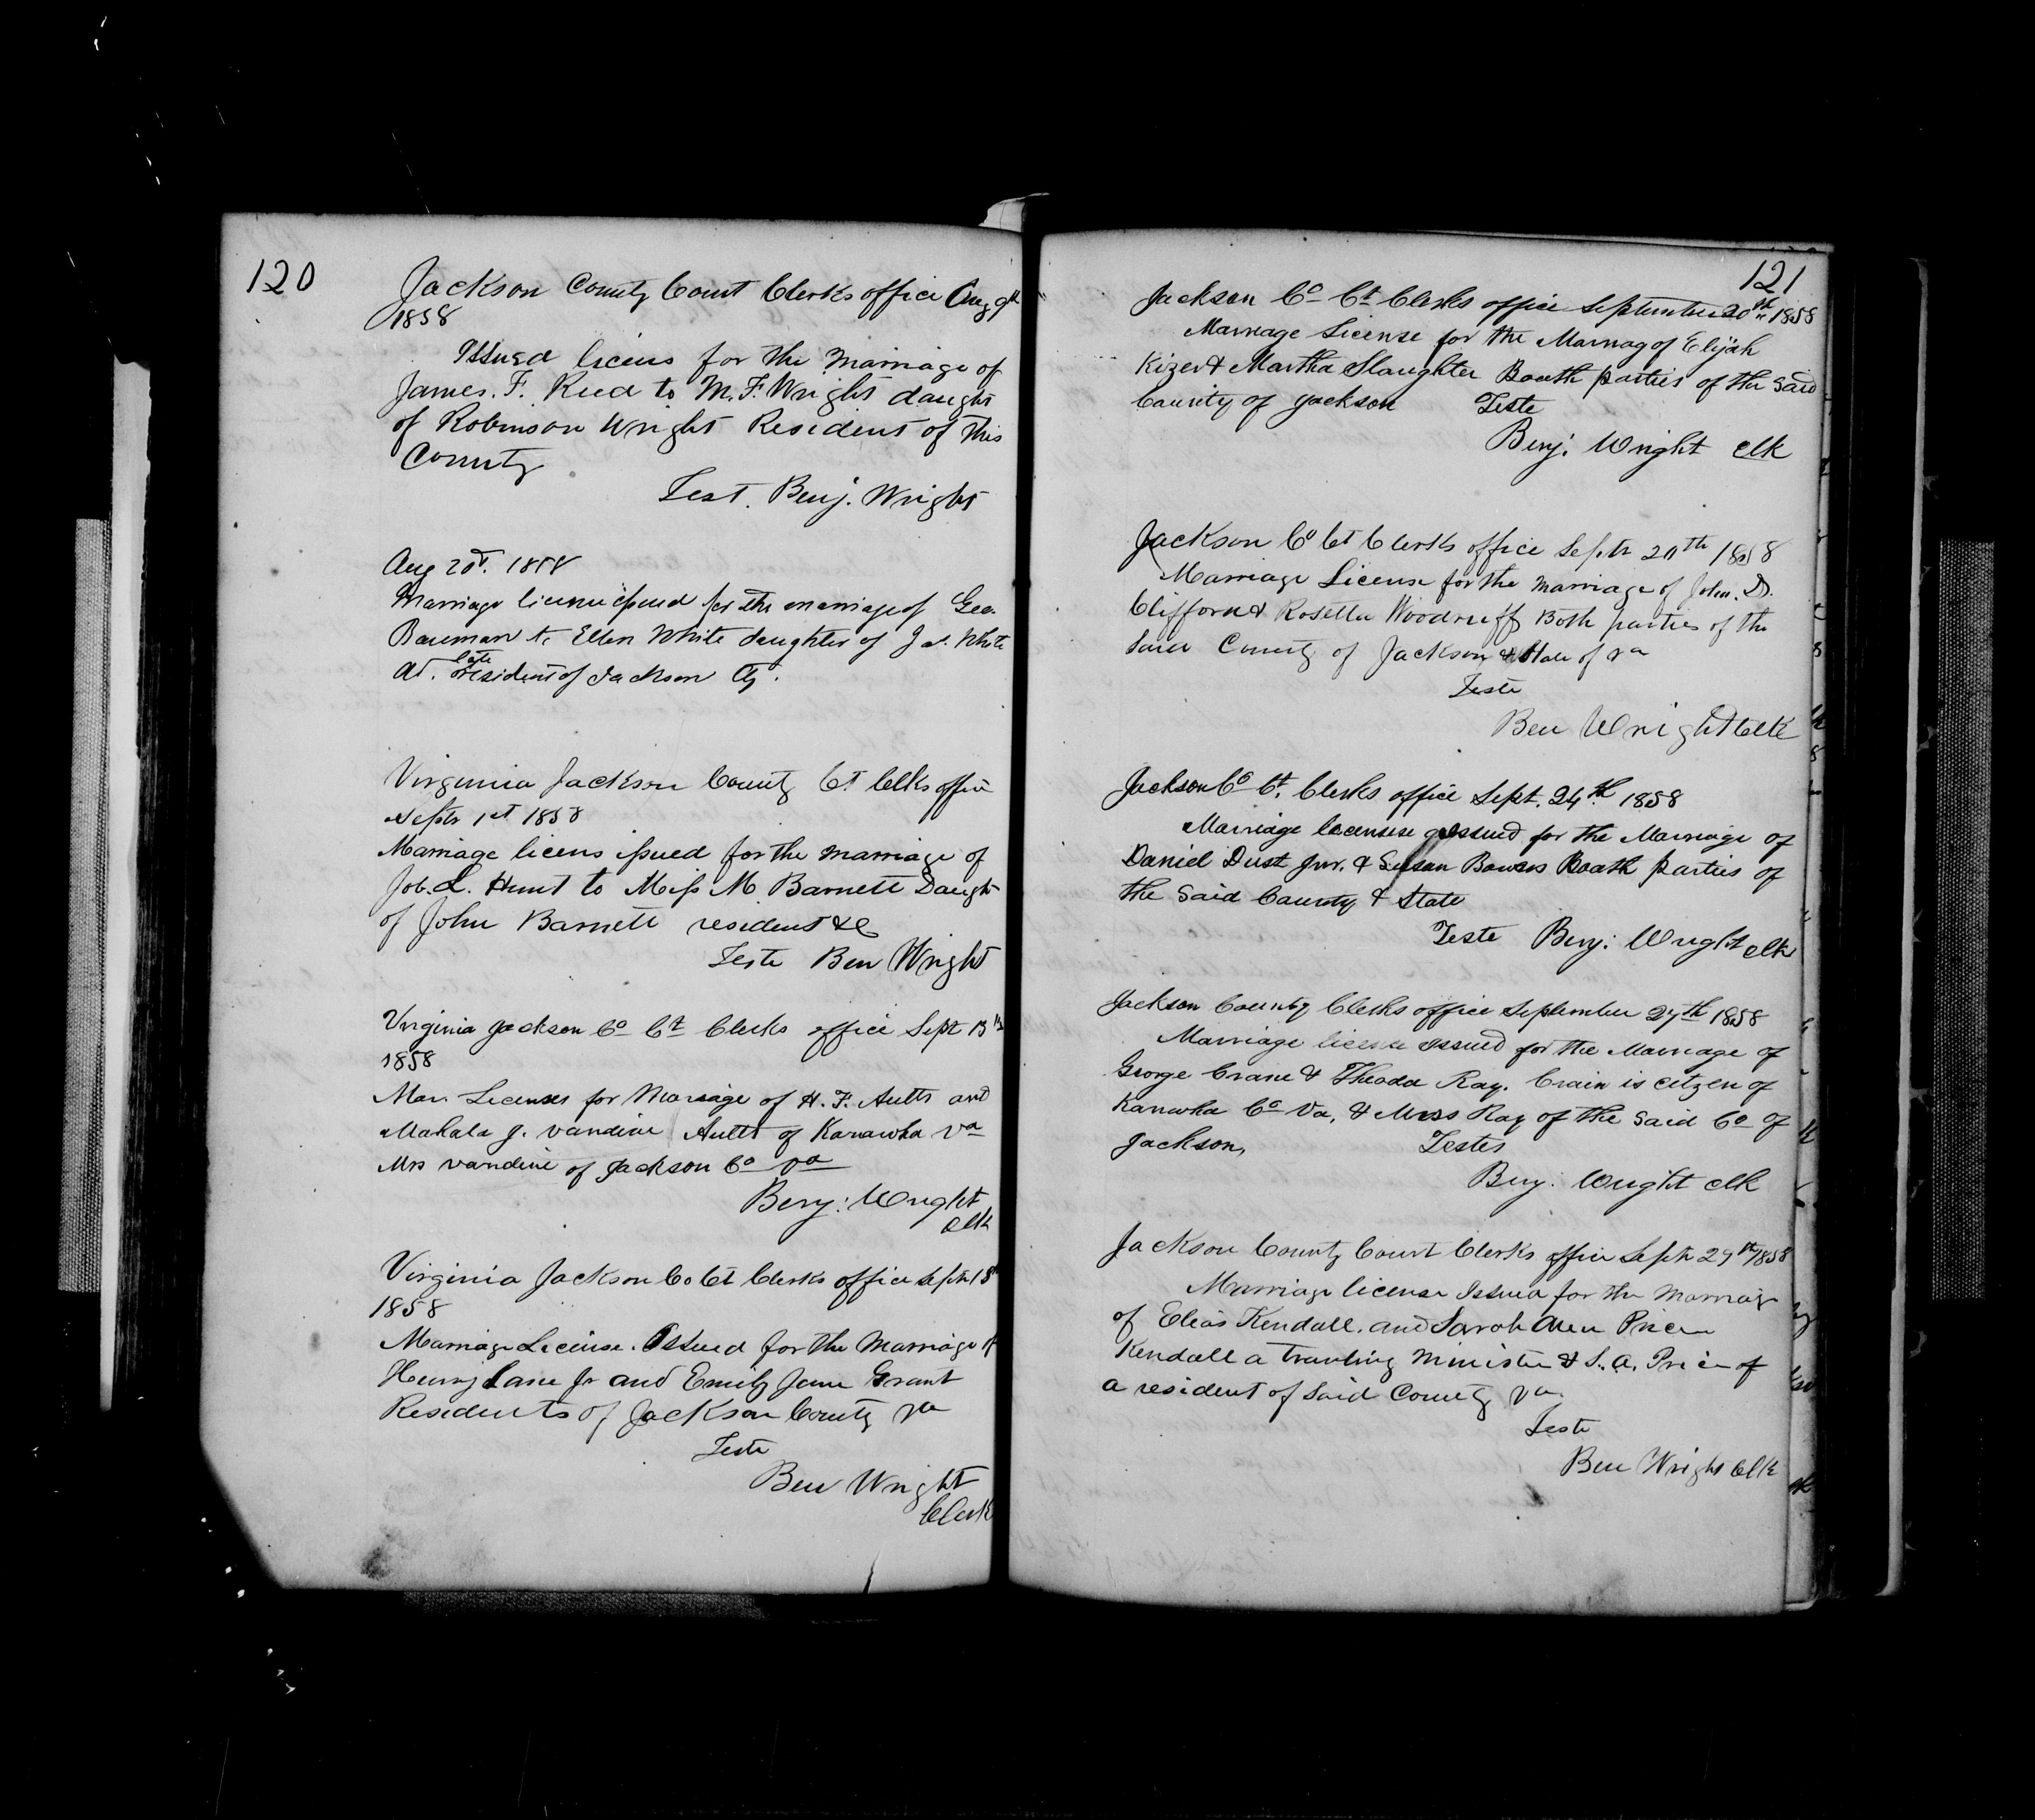 120
Jackson County Court Clerks office Aug 9th
1858
Issued licens for the marriage of
James. F. Reed to M. F. Wright daught
of Robinson Wright Resident of this
County
Test. Benj. Wright
Aug 20t. 1858
Marriage license issued for the marriage of Geo.
Bauman to Ellen White daughter of Ja. White
late
resident of Jackson Cty.
Virginia Jackson County Ct Clks office
Septr 1st 1858
Marriage licens issued for the marriage of
Job. L. Hunt to Miss M Barnett Daught
of John Barnett resident &c
Teste Ben Wright
Virginia Jackson Co Ct Clerks office Sept 13th
1858
Mar. Licenses for Marriage of H. F. Aults and
Mahala J. Vandine Aults of Kanawha Va
Mrs Vandine of Jackson Co Va
Benj: Wright
Clk
Virginia Jackson Co Ct Clerks office Septr 18th
1858
Marriage License. Issued for the Marriage of
Henry Lane Jr and Emily Jane Grant
Residents of Jackson County Va
Teste
Ben Wright
Clerk
121
Jackson Co Ct Clerks office September 20th 1858
Marriage License for the Marriag of Elijah
Kizer & Martha Slaughter Booth parties of the said
County of Jackson Teste
Benj: Wright Clk
Jackson Co Ct Clerks office Septr 20th 1858
Marriage License for the marriage of John. D.
Clifford & Rosetta Woodruff Both parties of the
said County of Jackson & State of Va
Teste
Ben Wright Clk
Jackson Co Ct. Clerks office Sept. 24th 1858
Marriage licensese issued for the Marriage of
Daniel Dust Jnr. & Susan Bowers Booth parties of
the said County & State
Teste Benj: Wright Clk
Jackson County Clerks office September 27th 1858
Marriage license issued for the Marriage of
George Crane & Theoda Ray. Crain is citzen of
Kanawha Co Va, & Miss Ray of the said Co of
Jackson, Testes
Benj: Wright Clk
Jackson County Court Clerks office Septr 29th 1858
Marriage license Issued for the Marriage
of Elias Kendall. and Sarah Ann Price
Kendall a travling Minister & S. A. Price of
a resident of said County Va.
Teste
Ben Wright Clk